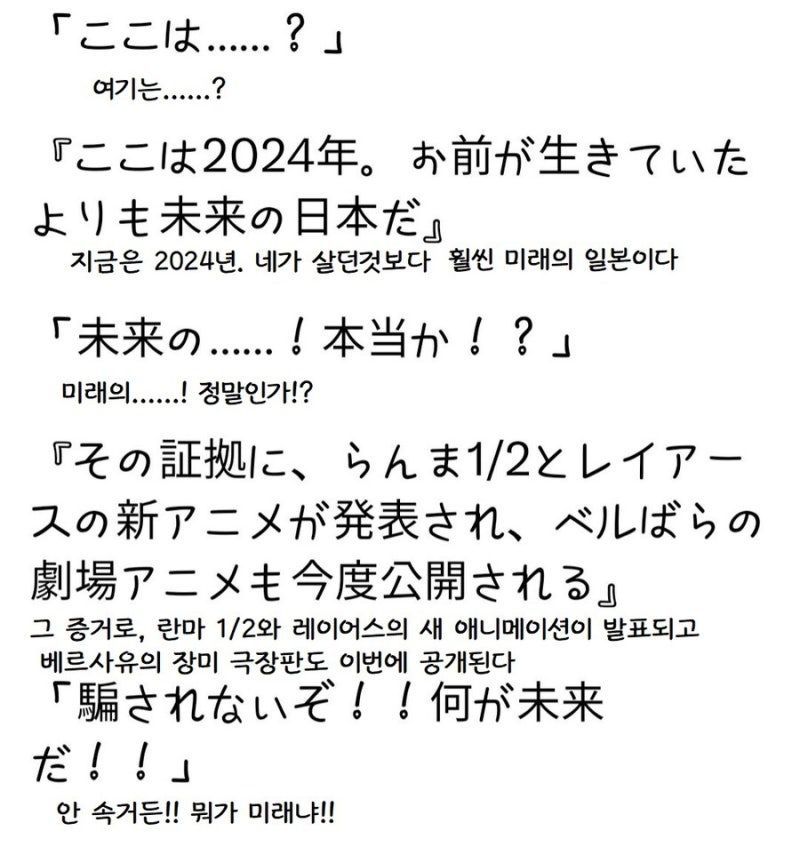 「ここは……？」
여기는......?
『ここは2024年。お前が生きていた
よりも未来の日本だ』
지금은 2024년. 네가 살던것보다 훨씬 미래의 일본이다
「未来の……！本当か！？」
미래의......! 정말인가!?
『その証拠に、らんま1/2とレイアー
スの新アニメが発表され、ベルばらの
劇場アニメも今度公開される』
그 증거로, 란마 1/2와 레이어스의 새 애니메이션이 발표되고
베르사유의 장미 극장판도 이번에 공개된다
「騙されないぞ！！何が未来
だ！！」
안 속거든!! 뭐가 미래냐!!